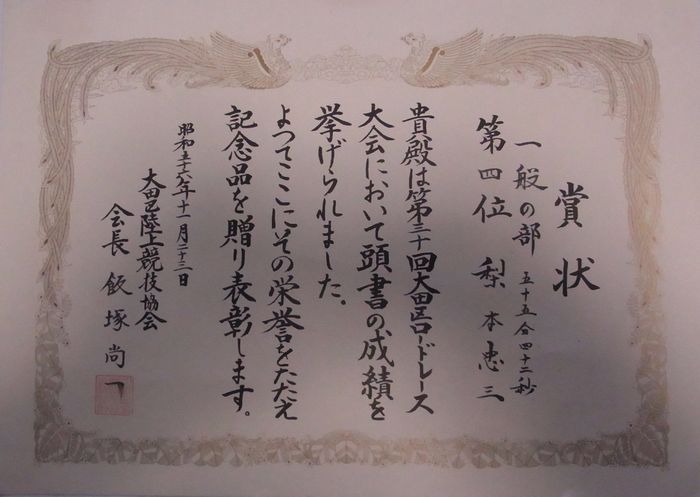 賞状
一般の部 五十五分四十二秒
第四位 梨本忠三
貴殿は第三十回大田区ロードレース
大会において頭書の成績を
挙げられました。
よつてここにその栄誉をたたえ
記念品を贈り表彰します。
昭和五十六年十一月二十三日
大田区陸上競技協会
会長 飯塚尚一